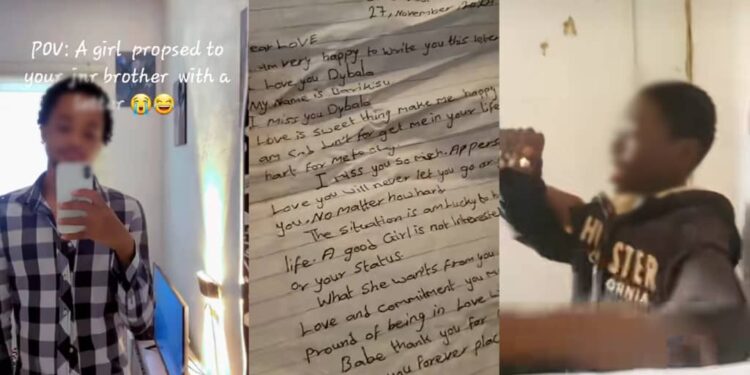 POV: A girl propsed to
your jnr brother with a
😭😄
27, November,
ear LOVE
Am very happy to write you this letter
I Love you Dybala
My name is
I miss you Dybala
Love is sweet thing make me happy
am Sad for get me in your life
hart for me to
I Miss you so much. A pers
Love you will never let you go or
you. No matter how hard
The situation is am Lucky to
life. A good Girl is not Interested
or your Status.
What She wants from you
Love and commitment you m
Pround of being in Love
Babe thank you for
you forever plac
STER
ORNIA